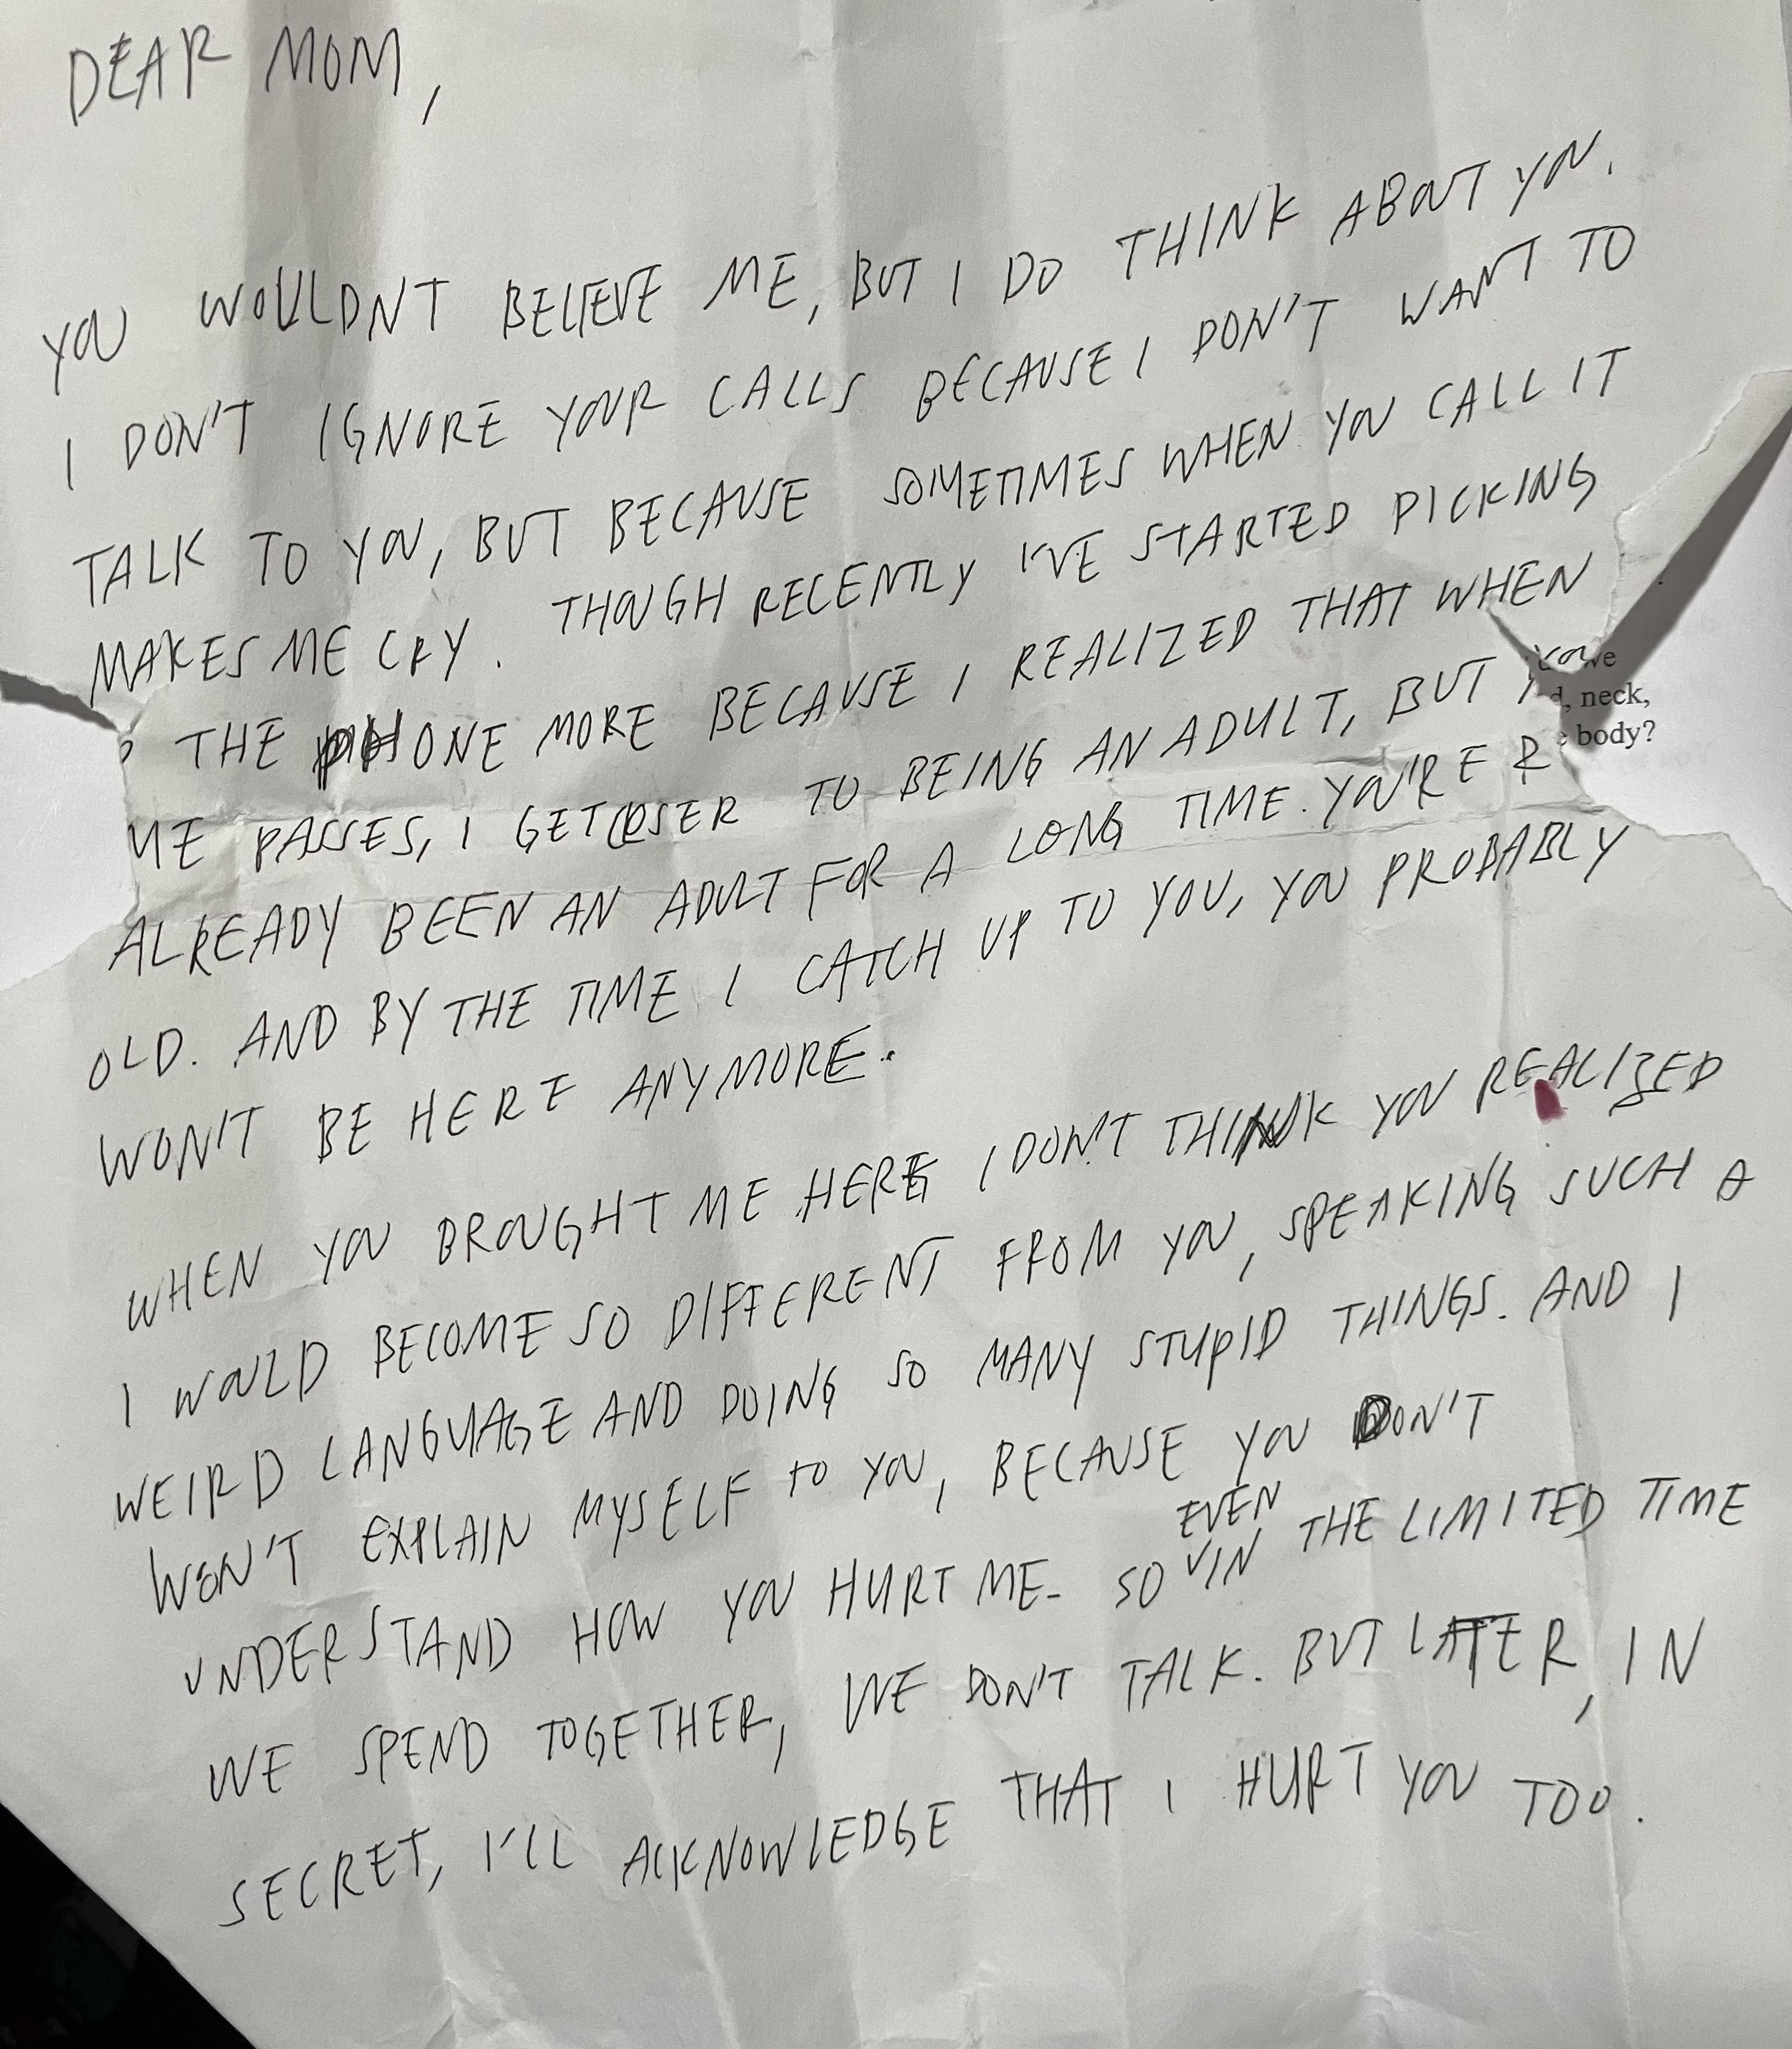 DEAR MOM,
YOU WOULDNT BELIEVE ME, BUT I DO THINK ABOUT YOU.
I DON'T IGNORE YOUR CALLS BECAUSE I DON'T WANT TO
TALK TO YOU, BUT BECAUSE SOMETIMES WHEN YOU CALL IT
MAKES ME CRY. THOUGH RECENTLY I'VE STARTED PICKING
THE PHONE MORE BECAUSE I REALIZED THAT WHEN
ME PASSES, I GET CLOSER TO BEING AN ADULT, BUT YOU
ALREADY BEEN AN ADULT FOR A LONG TIME. YOU'RE
OLD. AND BY THE TIME I CATCH UP TO YOU, YOU PROBABLY
WON'T BE HERE ANYMORE.
WHEN YOU BROUGHT ME HERE I DON'T THINK YOU REALIZED
I WOULD BECOME SO DIFFERENT FROM YOU, SPEAKING SUCH A
WEIRD LANGUAGE AND DOING SO MANY STUPID THINGS. AND I
WON'T EXPLAIN MYSELF TO YOU, BECAUSE YOU DON'T
UNDERSTAND HOW YOU HURT ME. SO EVEN IN THE LIMITED TIME
WE SPEND TOGETHER, WE DON'T TALK. BUT LATER, IN
SECRET, I'LL ACKNOWLEDGE THAT I HURT YOU TOO.
neck,
body?